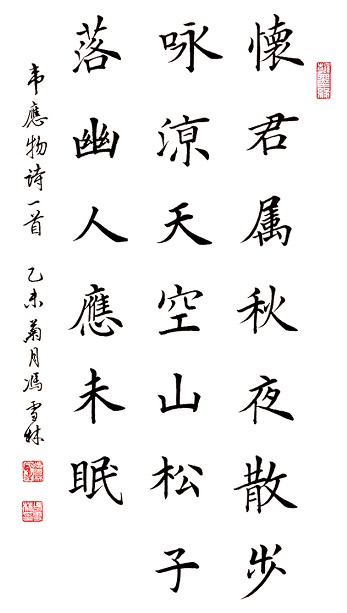 懷君属秋夜散步
咏涼天空山松子
落幽人應未眠
韦應物诗一首 乙未菊月馮雪林